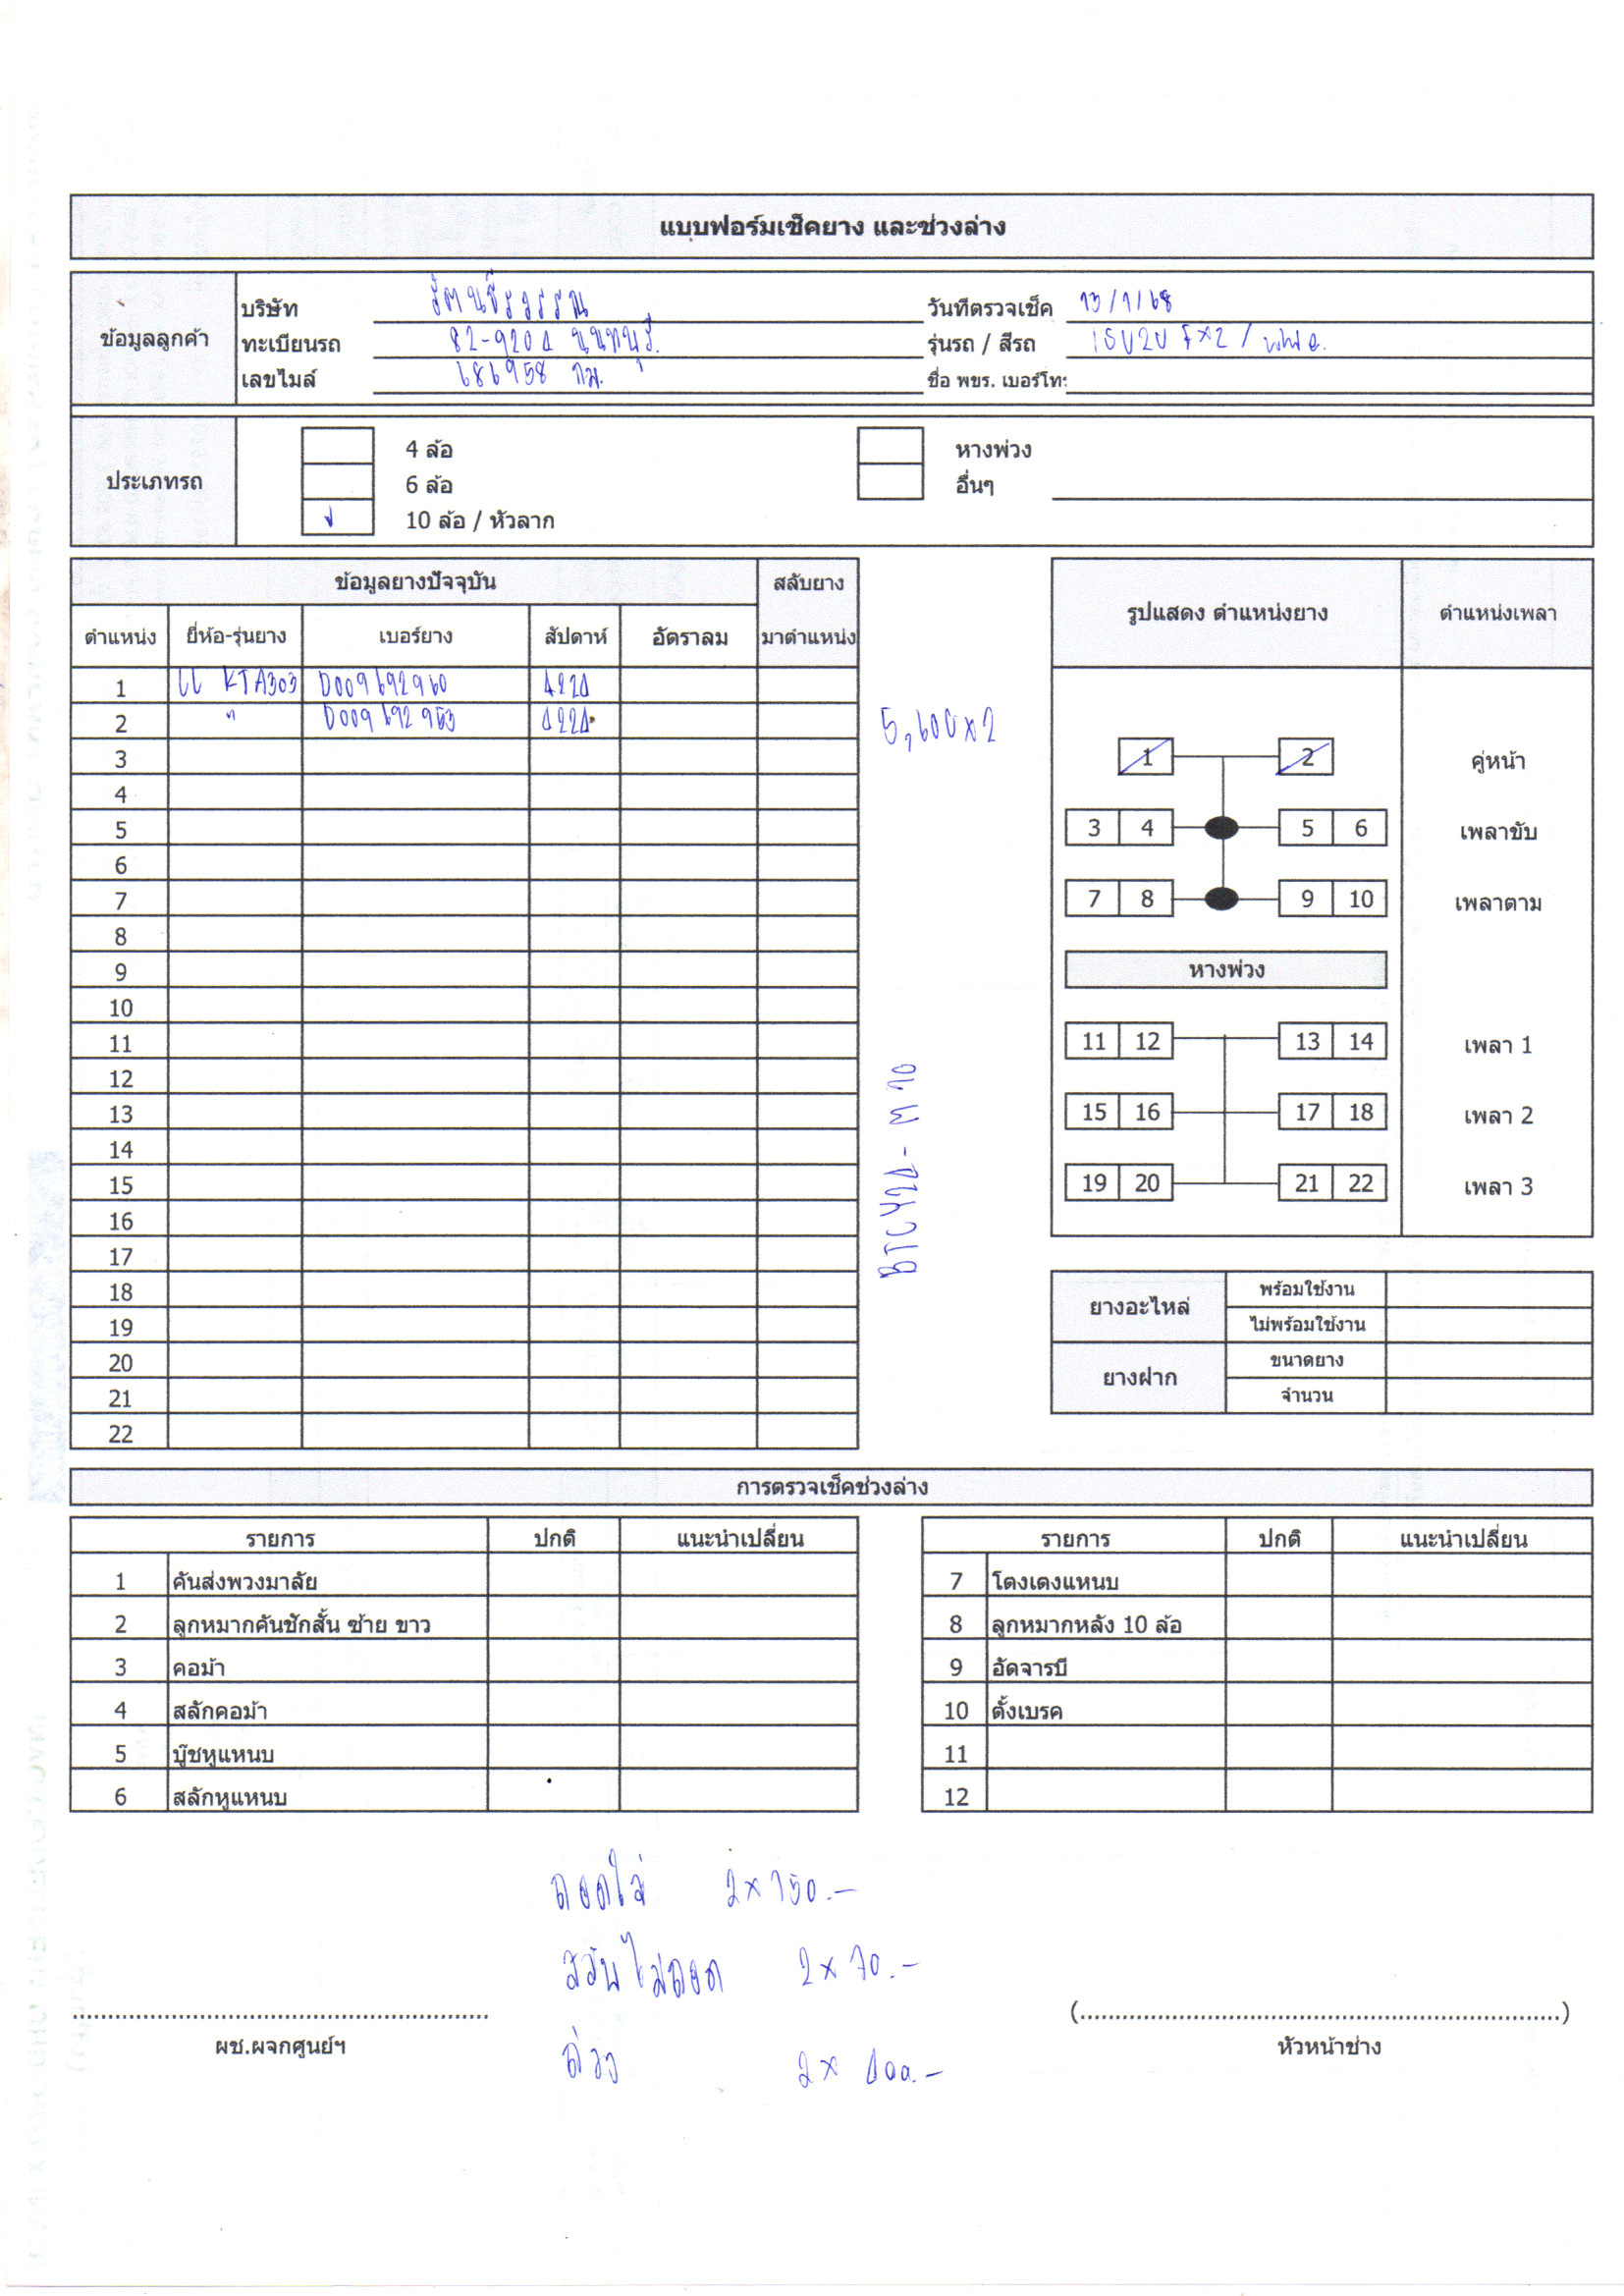 แบบฟอร์มเช็คยาง และช่วงล่าง
ข้อมูลลูกค้า
บริษัท รัตนชีรวรรณ วันที่ตรวจเช็ค 13/1/68
ทะเบียนรถ 82-9204 นนทบุรี. รุ่นรถ / สีรถ ISUZU FX2 /
เลขไมล์ 686958 กม. ชื่อ พขร. เบอร์โทร
ประเภทรถ
4 ล้อ หางพ่วง
6 ล้อ อื่นๆ
10 ล้อ / หัวลาก
ข้อมูลยางปัจจุบัน สลับยาง
ตำแหน่ง ยี่ห้อ-รุ่นยาง เบอร์ยาง สัปดาห์ อัตราลม มาตำแหน่ง
1 LL KTA303 D009692960 4224
2 " D009692953 4224
3
4
5
6
7
8
9
10
11
12
13
14
15
16
17
18
19
20
21
22
5,600x2
รูปแสดง ตำแหน่งยาง ตำแหน่งเพลา
1 2 คู่หน้า
3 4 5 6 เพลาขับ
7 8 9 10 เพลาตาม
หางพ่วง
11 12 13 14 เพลา 1
15 16 17 18 เพลา 2
19 20 21 22 เพลา 3
ยางอะไหล่ พร้อมใช้งาน
ไม่พร้อมใช้งาน
ยางฝาก ขนาดยาง
จำนวน
การตรวจเช็คช่วงล่าง
รายการ ปกติ แนะนำเปลี่ยน
1 คันส่งพวงมาลัย
2 ลูกหมากคันชักสั้น ซ้าย ขาว
3 คอม้า
4 สลักคอม้า
5 บู๊ชหูแหนบ
6 สลักหูแหนบ
รายการ ปกติ แนะนำเปลี่ยน
7 โตงเตงแหนบ
8 ลูกหมากหลัง 10 ล้อ
9 อัดจารบี
10 ตั้งเบรค
11
12
ถอดใส่ 2x150.-
สลับไม่ถอด 2x70.-
ถ่วง 2x400.-
ผช.ผจกศูนย์ฯ
(..........)
หัวหน้าช่าง